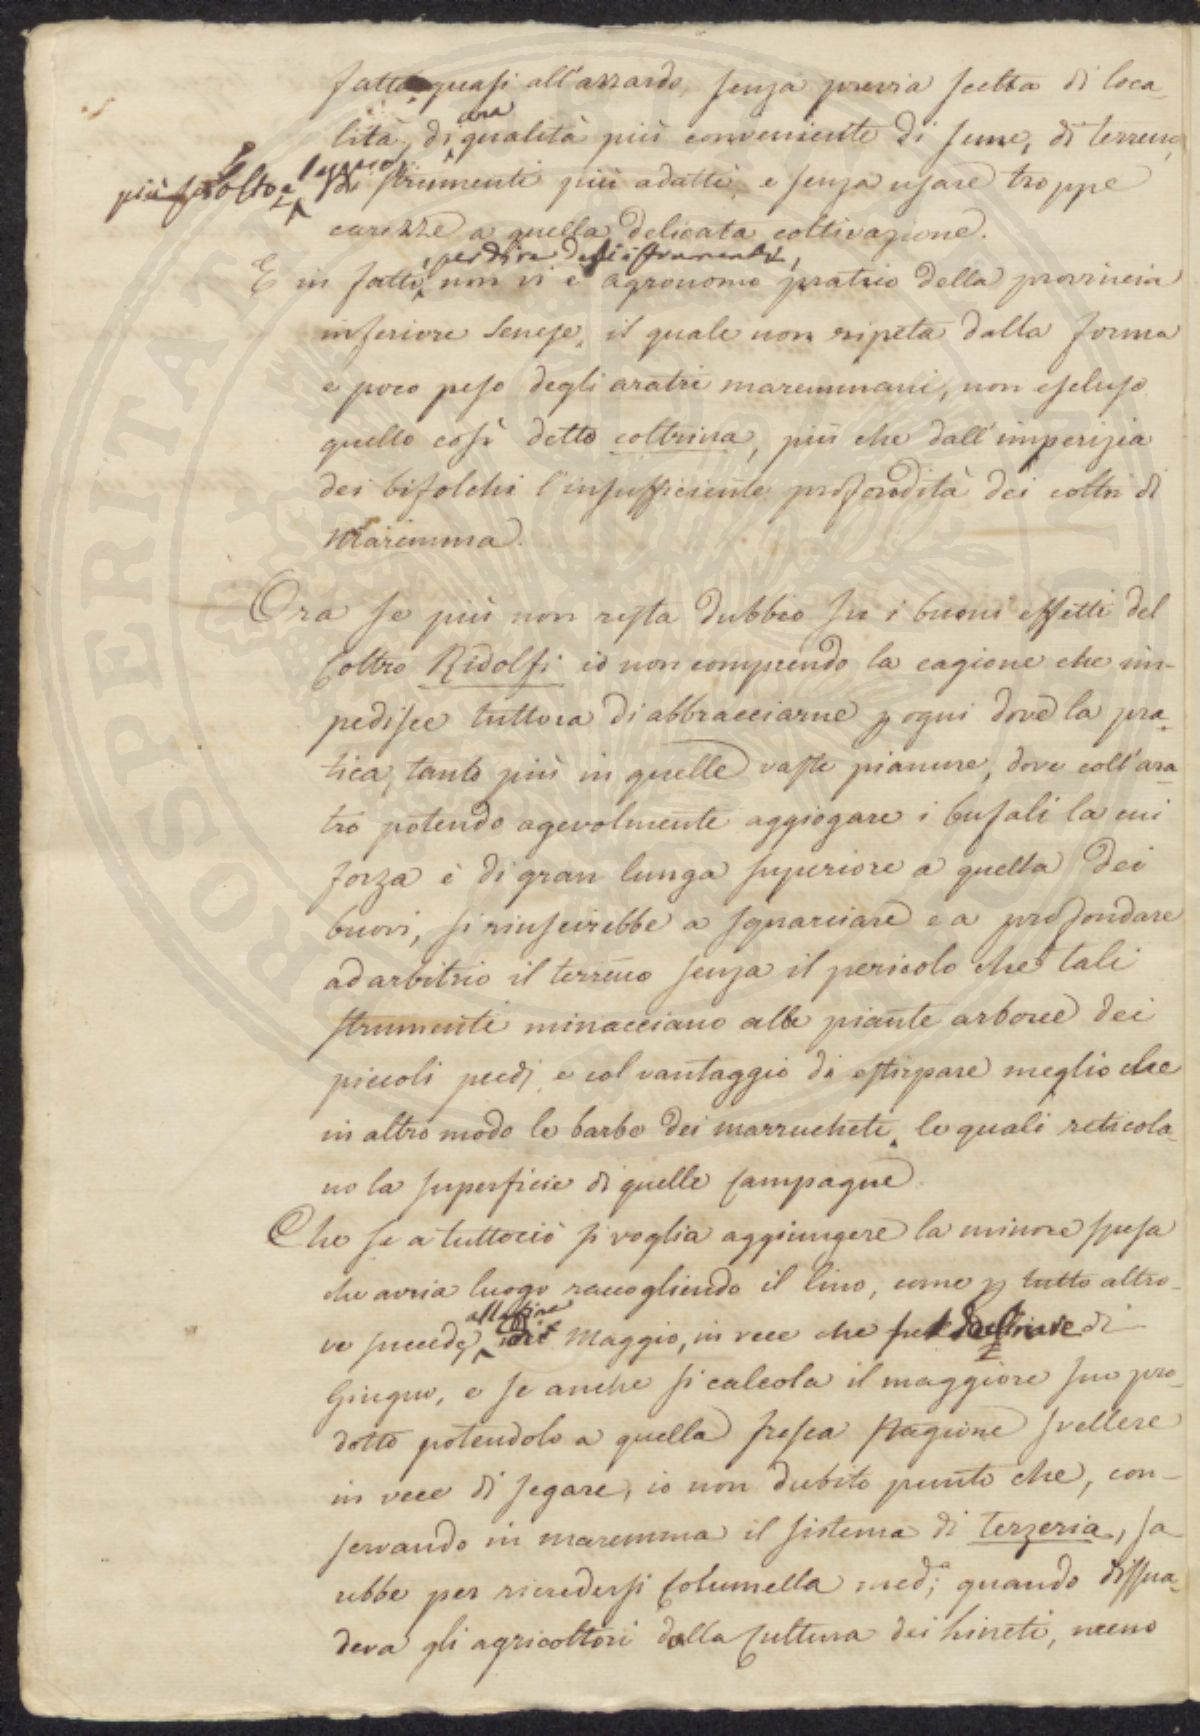 fatto quasi all'azzardo, senza previa scelta di loca-
lità, di una qualità più conveniente di seme, di terreno
più sciolto e leggero, di strumenti più adatti, e senza usare troppe
carezze a quella delicata coltivazione.
E in fatti, per dire degli istrumenti, non vi è agronomo pratico della provincia
inferiore Senese, il quale non ripeta dalla forma
e poco peso degli aratri maremmani, non escluso
quello così detto coltrina, più che dall'imperizia
dei bifolchi l'insufficiente profondità dei coltri di
Maremma.
Ora se più non resta dubbio su i buoni effetti del
Coltro Ridolfi io non comprendo la cagione che im-
pedisce tuttora di abbracciarne p ogni dove la pra-
tica, tanto più in quelle vaste pianure, dove coll'ara-
tro potendo agevolmente aggiogare i bufali la cui
forza è di gran lunga superiore a quella dei
buovi, si riuscirebbe a squarciare e a profondare
ad arbitrio il terreno senza il pericolo che tali
strumenti minacciano alle piante arboree dei
piccoli predj e col vantaggio di estirpare meglio che
in altro modo le barbe dei marrucheti, le quali reticola-
no la superficie di quelle campagne.
Che se a tuttociò si voglia aggiungere la minore spesa
che avria luogo raccogliendo il lino, come p tutto altro-
ve succede, alla fine di Maggio, in vece che di
Giugno, e se anche si calcola il maggiore suo pro-
dotto potendolo a quella fresca stagione svellere
in vece di segare, io non dubito punto che, con-
servando in maremma il sistema di terzeria, sa
rebbe per ricredersi Columella med.º quando dissua-
deva gli agricoltori dalla cultura dei lineti, meno